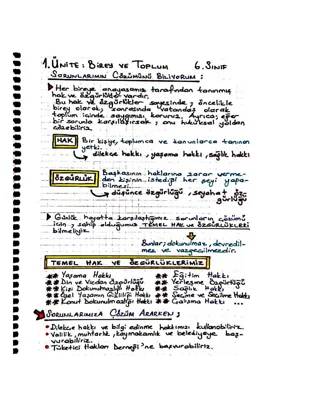 1. ÜNİTE: BİREY VE TOPLUM 6. SINIF
SORUNLARIMIN ÇÖZÜMÜNÜ BİLİYORUM:
Her bireye anayasamız tarafından tanınmış
hak ve özgürlükler vardır.
Bu hak ve özgürlükler sayesinde, öncelikle
birey olarak, sonrasında vatandaş olarak
toplum içinde saygımızı koruruz. Ayrıca; eğer
bir sorunla karşılaşırsak, onu hukuksal yoldan
çözebiliriz.
HAK Bir kişiye, toplumca ve kanunlarca tanınan
yetki.
dilekçe hakkı, yaşama hakkı, sağlık hakkı
ÖZGÜRLÜK Başkasının haklarına zarar verme-
den kişinin istediği her şeyi yapa-
bilmesi.
düşünce özgürlüğü, seyahat öz-
gürlüğü
Günlük hayatta karşılaştığımız sorunların çözümü
için, sahip olduğumuz TEMEL HAK ve ÖZGÜRLÜKLERİ
bilmeliyiz.
Bunlar; dokunulmaz, devredil-
mez ve vazgeçilmezdir.
TEMEL HAK VE ÖZGÜRLÜKLERİMİZ
** Yaşama Hakkı ** Eğitim Hakkı
** Din ve Vicdan Özgürlüğü ** Yerleşme Özgürlüğü
** Kişi Dokunulmazlığı Hakkı ** Sağlık Hakkı
** Özel Yaşamın Gizliliği Hakkı ** Seçme ve Seçilme Hakkı
** Konut Dokunulmazlığı Hakkı ** Çalışma Hakkı ...
SORUNLARIMIZA ÇÖZÜM ARARKEN;
• Dilekçe hakkı ve bilgi edinme hakkımızı kullanabiliriz.
• Valilik, muhtarlık, kaymakamlık ve belediyeye baş-
vurabiliriz.
• Tüketici Hakları Derneği'ne başvurabiliriz.